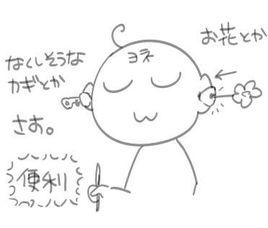 お花とか
ヨネ
なくしそうな
カギとか
さす。
便利